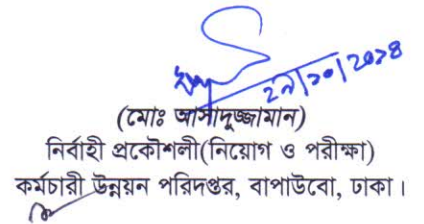 ২৯/১০/২০২৪
(মোঃ আসাদুজ্জামান)
নির্বাহী প্রকৌশলী(নিয়োগ ও পরীক্ষা)
কর্মচারী উন্নয়ন পরিদপ্তর, বাপাউবো, ঢাকা।